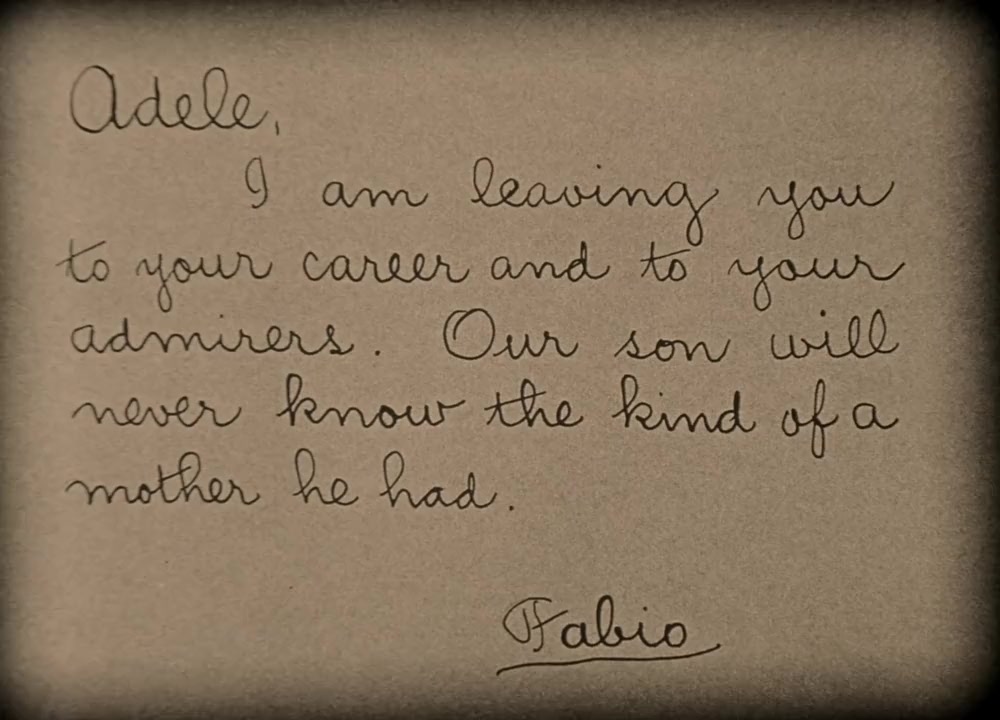 Adele,
I am leaving you
to your career and to your
admirers. Our son will
never know the kind of a
mother he had.
Fabio